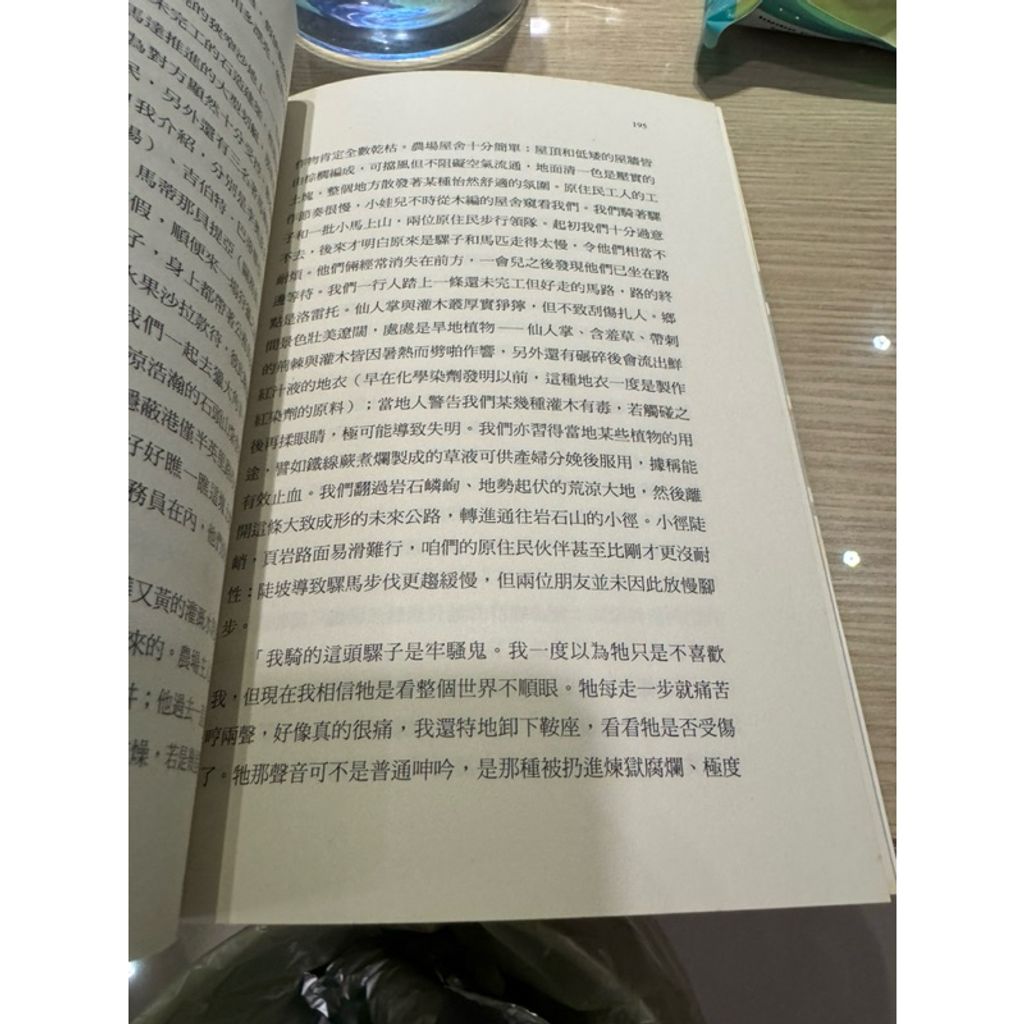 195
作物肯定全數乾枯。農場屋舍十分簡單：屋頂和低矮的屋牆皆
由棕櫚編成，可擋風但不阻礙空氣流通，地面清一色是壓實的
土塊。整個地方散發著某種怡然舒適的氛圍。原住民工人的工
作節奏很慢，小娃兒不時從木編的屋舍窺看我們。我們騎著騾
子和一批小馬上山，兩位原住民步行領隊。起初我們十分過意
不去，後來才明白原來是騾子和馬匹走得太慢，令他們相當不
耐煩。他們倆經常消失在前方，一會兒之後發現他們已坐在路
邊等待。我們一行人踏上一條還未完工但好走的馬路，路的終
點是洛雷托。仙人掌與灌木叢厚實猙獰，但不致刮傷扎人。鄉
間景色壯美遼闊，處處是旱地植物——仙人掌、含羞草、帶刺
的荊棘與灌木皆因暑熱而劈啪作響，另外還有碾碎後會流出鮮
紅汁液的地衣（早在化學染劑發明以前，這種地衣一度是製作
紅染劑的原料）；當地人警告我們某幾種灌木有毒，若觸碰之
後再揉眼睛，極可能導致失明。我們亦習得當地某些植物的用
途，譬如鐵線蕨煮爛製成的草液可供產婦分娩後服用，據稱能
有效止血。我們翻過岩石嶙峋、地勢起伏的荒涼大地，然後離
開這條大致成形的未來公路，轉進通往岩石山的小徑。小徑陡
峭，頁岩路面易滑難行，咱們的原住民伙伴甚至比剛才更沒耐
性：陡坡導致騾馬步伐更趨緩慢，但兩位朋友並未因此放慢腳
步。
「我騎的這頭騾子是牢騷鬼。我一度以為牠只是不喜歡
我，但現在我相信牠是看整個世界不順眼。牠每走一步就痛苦
哼兩聲，好像真的很痛，我還特地卸下鞍座，看看牠是否受傷
了。牠那聲音可不是普通呻吟，是那種被扔進煉獄腐爛、極度